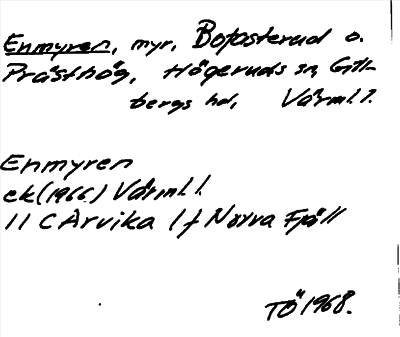 Enmyren, myr, Bofasterud o.
Prästbög, Högeruds sn, Gill-
bergs hd, Värml. l.
Enmyren
ek (1966) Värml. l.
11 C Arvika 1 f Norra Fjäll
TÖ 1968.